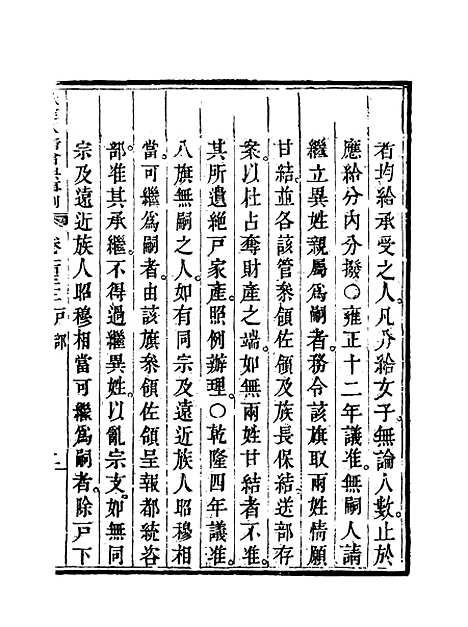 者均給承受之人。凡分給女子。無論人數。止於
應給分內分撥。○雍正十二年議准。無嗣人請
繼立異姓親屬爲嗣者。務令該旗取兩姓情願
甘結。並各該管參領佐領及族長保結。送部存
案。以杜占奪財產之端。如無兩姓甘結者。不准。
其所遺絕戶家產。照例辦理。○乾隆四年議准。
八旗無嗣之人。如有同宗及遠近族人昭穆相
當可繼爲嗣者。由該旗參領佐領呈報都統咨
部。准其承繼。不得過繼異姓。以亂宗支。如無同
宗及遠近族人昭穆相當可繼爲嗣者。除戶下
戶部